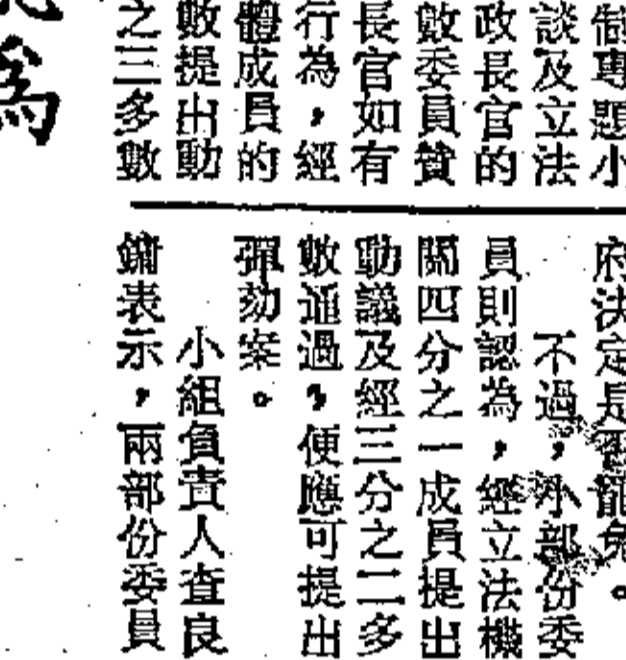 制專題小
談及立法
政長官的
數委員贊
長官如有
行為，經
體成員的
數提出動
之三多數
為
府決定是否罷免。
不過，小部份委
員則認為，經立法機
關四分之一成員提出
動議及經三分之二多
數通過，便應可提出
彈劾案。
小組負責人查良
鏞表示，兩部份委員